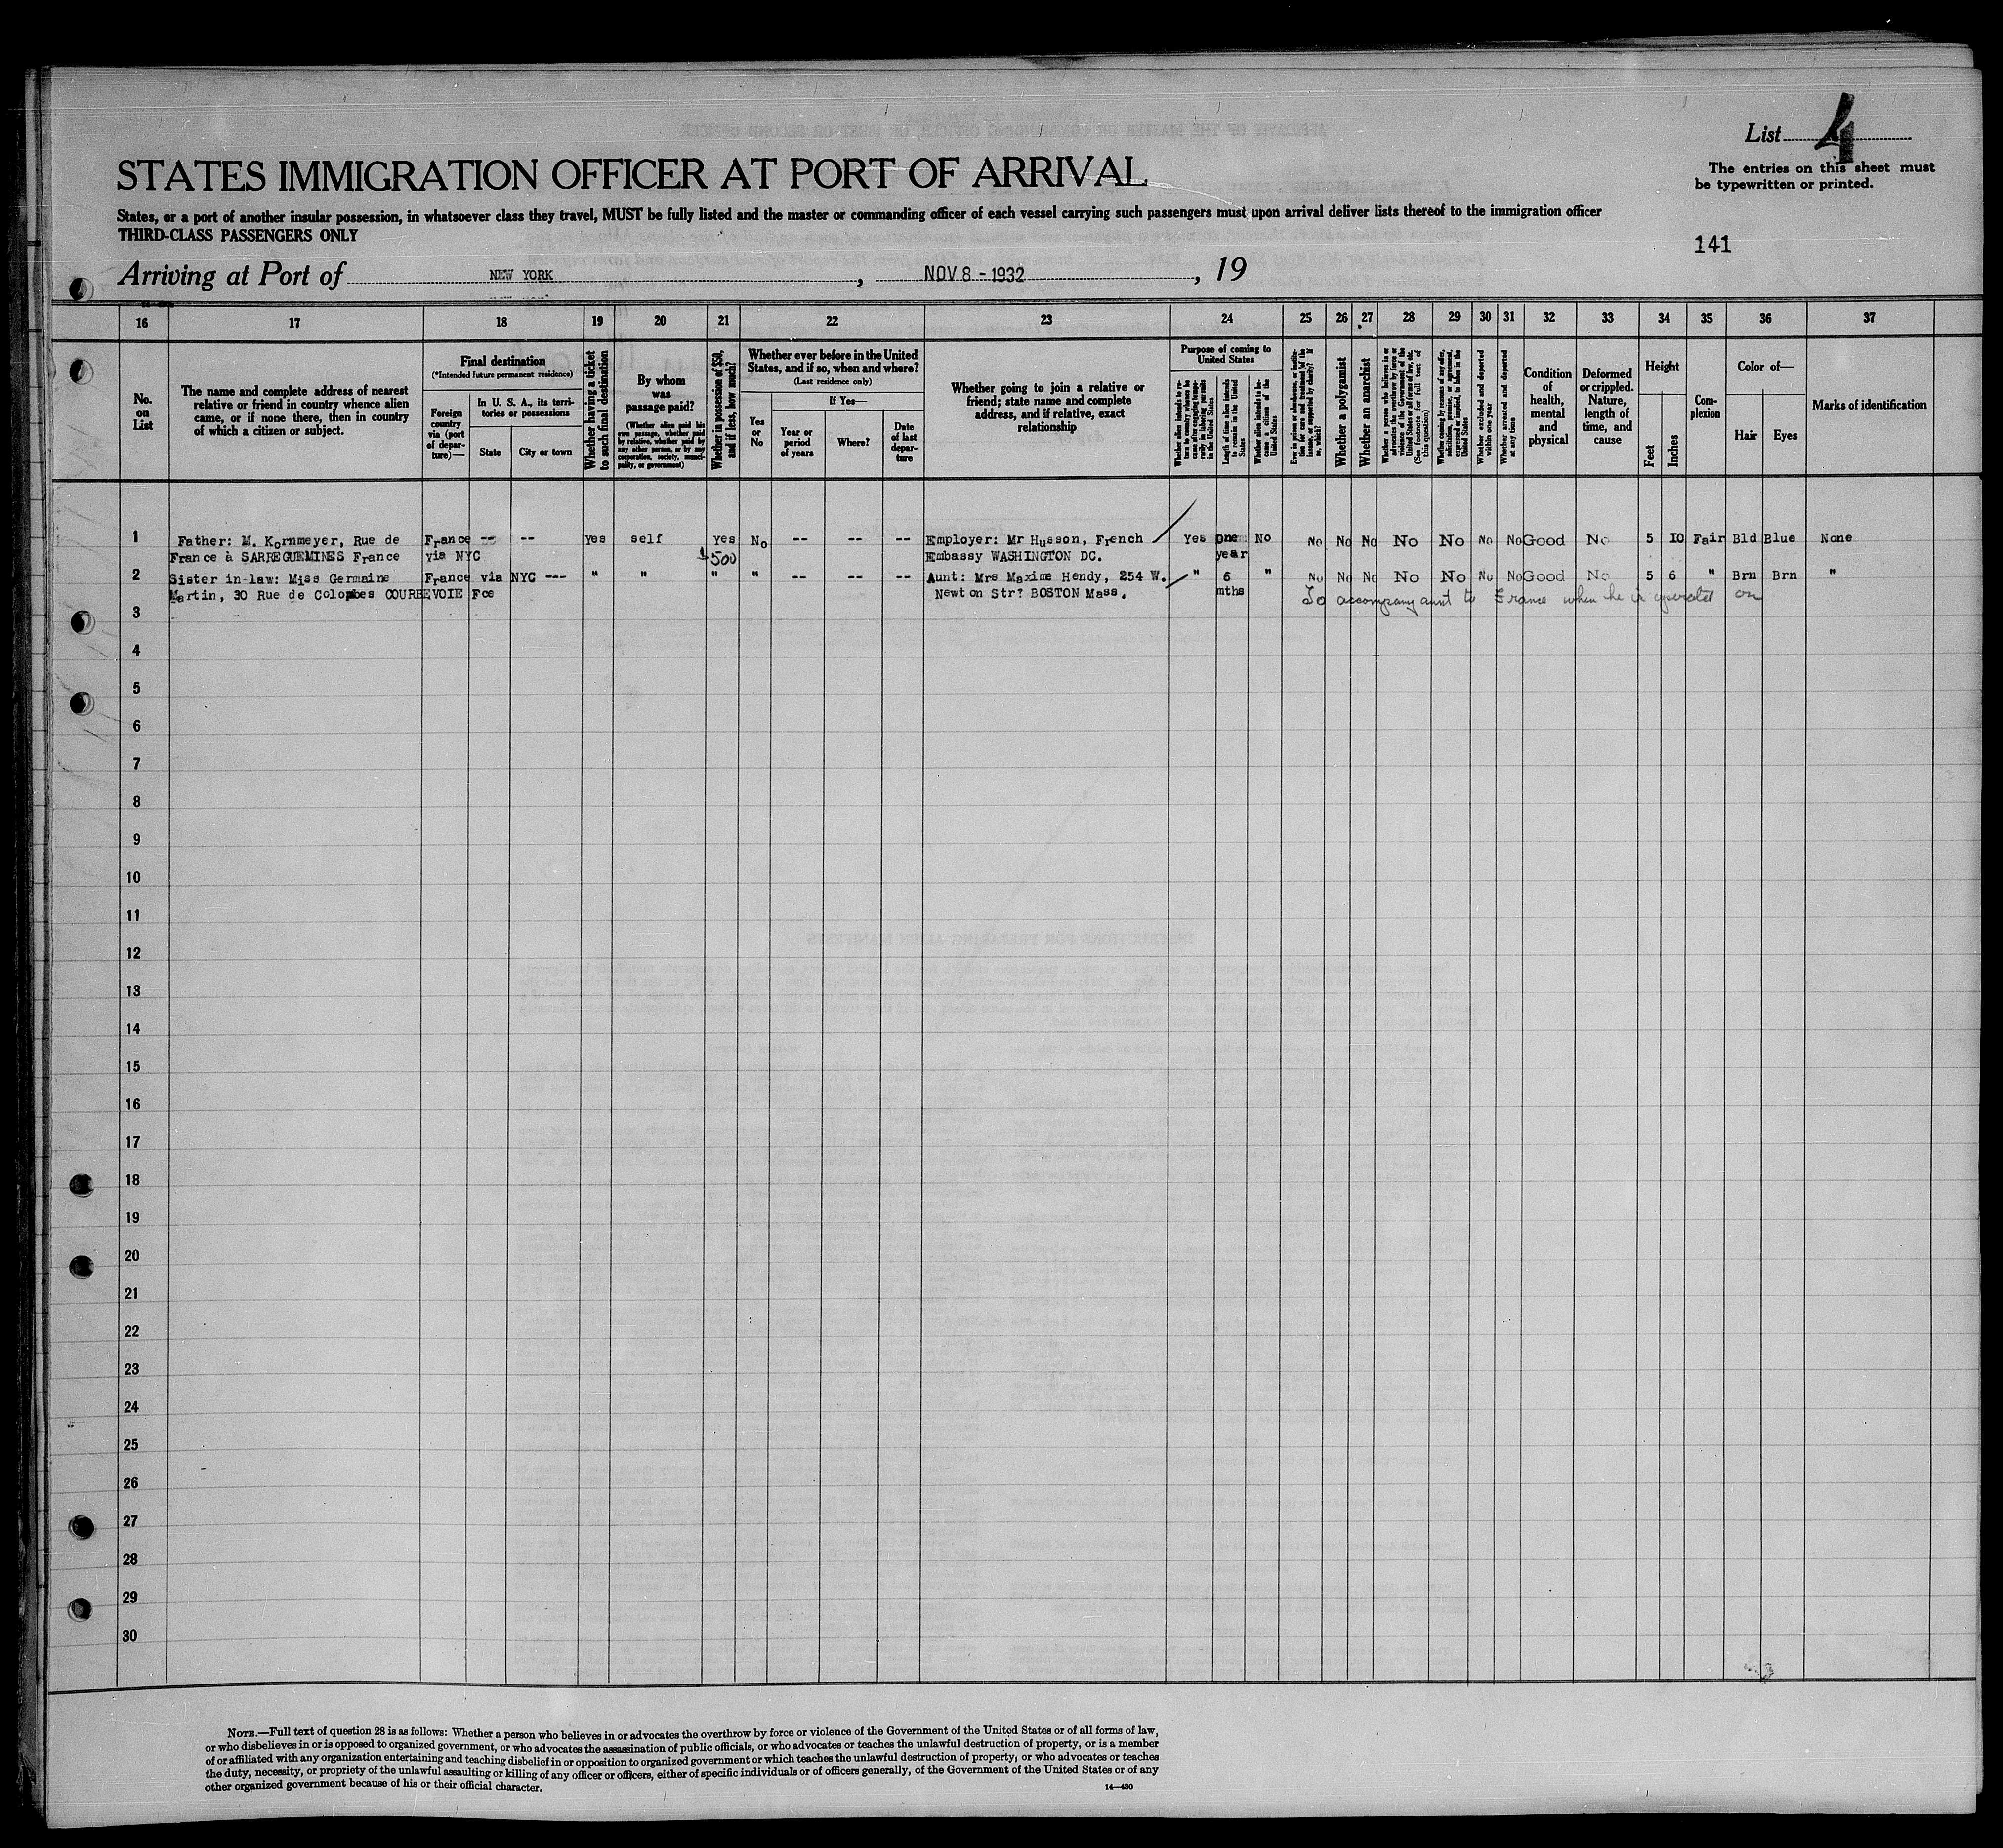 List 4
The entries on this sheet must
be typewritten or printed.
STATES IMMIGRATION OFFICER AT PORT OF ARRIVAL
States, or a port of another insular possession, in whatsoever class they travel, MUST be fully listed and the master or commanding officer of each vessel carrying such passengers must upon arrival deliver lists thereof to the immigration officer
THIRD-CLASS PASSENGERS ONLY
141
Arriving at Port of NEW YORK, NOV 8 - 1932, 19
16 17 18 19 20 21 22 23 24 25 26 27 28 29 30 31 32 33 34 35 36 37
No. on List
The name and complete address of nearest
relative or friend in country whence alien
came, or if none there, then in country
of which a citizen or subject.
Final destination
(*Intended future permanent residence)
Foreign country via (port of departure)—
In U. S. A., its territories or possessions
State
City or town
Whether having a ticket to such final destination
By whom was passage paid?
(Whether alien paid his own passage, whether paid by relative, whether paid by any other person, or by any corporation, society, municipality, or government)
Whether in possession of $50, and if less, how much?
Whether ever before in the United States, and if so, when and where?
(Last residence only)
Yes or No
If Yes—
Year or period of years
Where?
Date of last departure
Whether going to join a relative or
friend; state name and complete
address, and if relative, exact
relationship
Purpose of coming to United States
Whether alien intends to return to country whence he came after engaging temporarily in laboring pursuits in the United States
Length of time alien intends to remain in the United States
Whether alien intends to become a citizen of the United States
Ever in prison or almshouse, or institution for care and treatment of the insane, or supported by charity? If so, which?
Whether a polygamist
Whether an anarchist
Whether a person who believes in or advocates the overthrow by force or violence of the Government of the United States or all forms of law, etc. (See footnote for full text of this question)
Whether coming by reasons of any offer, solicitation, promise, or agreement, expressed or implied, to labor in the United States
Whether excluded and deported within one year
Whether arrested and deported at any time
Condition of health, mental and physical
Deformed or crippled. Nature, length of time, and cause
Height
Feet
Inches
Complexion
Color of—
Hair
Eyes
Marks of identification
1 Father: M. Kornmeyer, Rue de France -- -- yes self yes No -- -- -- Employer: Mr Husson, French Yes one No No No No No No No No Good No 5 10 Fair Bld Blue None
France à SARREGUEMINES France via NYC $500 Embassy WASHINGTON DC. year
2 Sister in-law: Miss Germaine France via NYC --- " " " " -- -- -- Aunt: Mrs Maxime Hendy, 254 W. " 6 " No No No No No No No Good No 5 6 " Brn Brn "
Martin, 30 Rue de Colombes COURBEVOIE Fce Newton Str? BOSTON Mass. mths To accompany aunt to France when he is operated on
3
4
5
6
7
8
9
10
11
12
13
14
15
16
17
18
19
20
21
22
23
24
25
26
27
28
29
30
NOTE.—Full text of question 28 is as follows: Whether a person who believes in or advocates the overthrow by force or violence of the Government of the United States or of all forms of law,
or who disbelieves in or is opposed to organized government, or who advocates the assassination of public officials, or who advocates or teaches the unlawful destruction of property, or is a member
of or affiliated with any organization entertaining and teaching disbelief in or opposition to organized government or which teaches the unlawful destruction of property, or who advocates or teaches
the duty, necessity, or propriety of the unlawful assaulting or killing of any officer or officers, either of specific individuals or of officers generally, of the Government of the United States or of any
other organized government because of his or their official character.
14—430